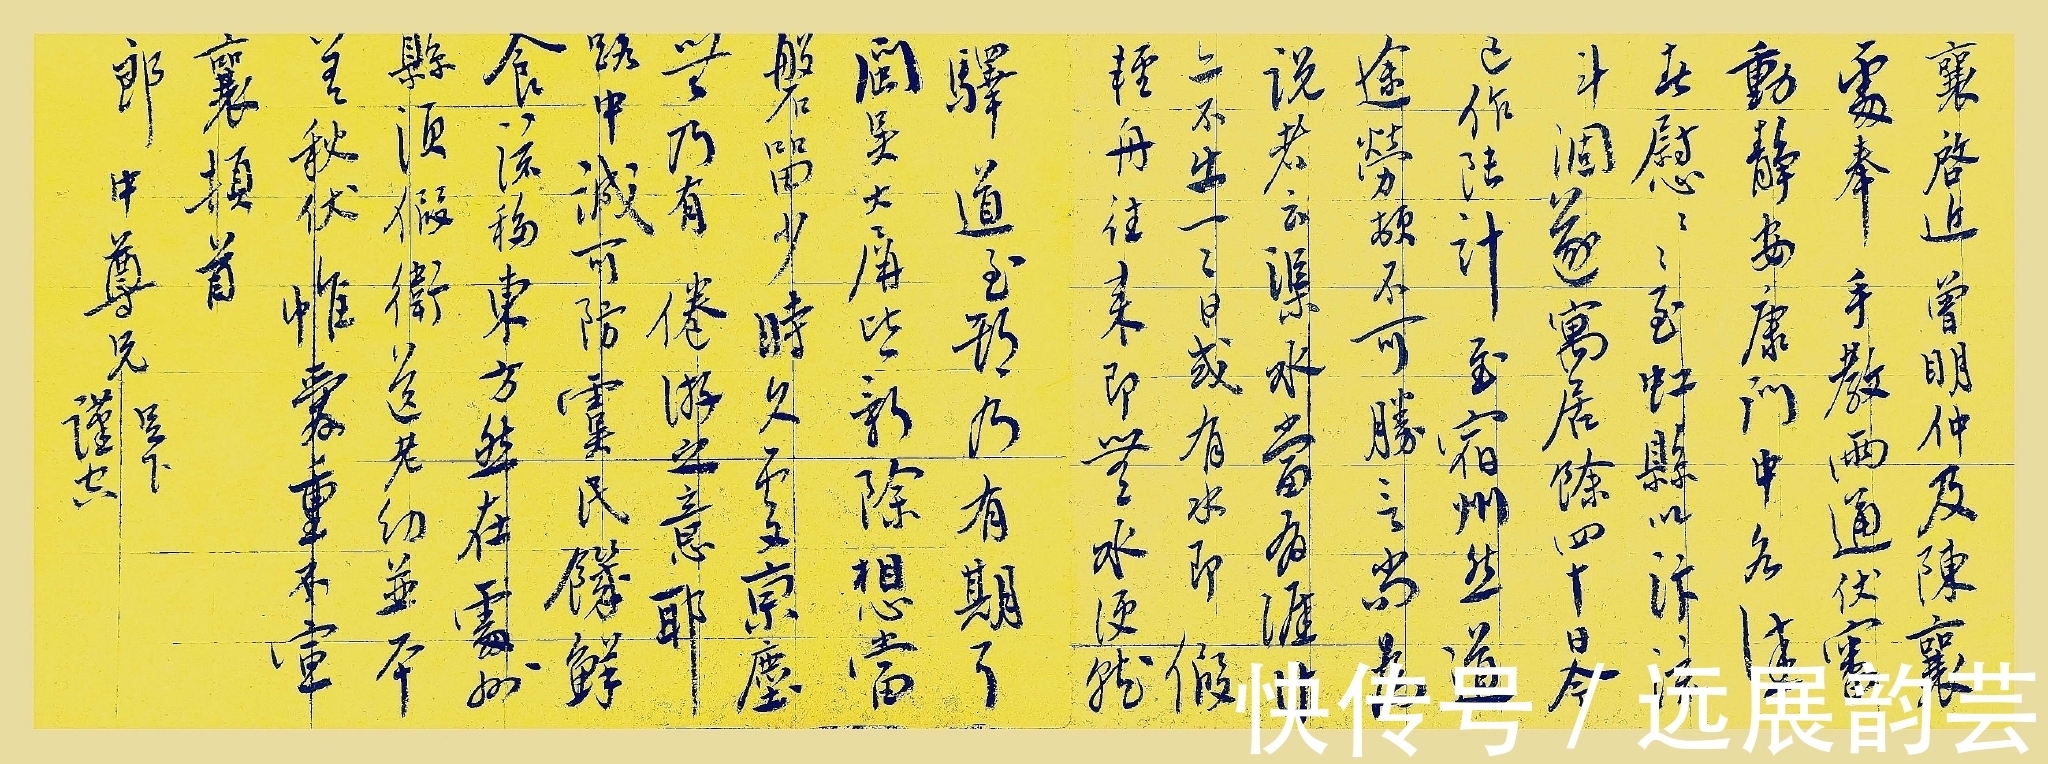 襄啓近曾明仲及陳襄
處奉手教兩通伏審
動靜安康門中各佳
喜慰〻〻至虹縣以汴流
斗涸遂寓居餘四十日今
已作陸計至宿州然道
途勞頓不可勝言尚爲
説者云渠水當有涯計
亦不出一二日或有水即假
輕舟往來即無水便就
驛道至都乃有期耳
閩吳大屏皆新除想當
磐留少時久處京塵
無乃有倦游之意耶
路中誠可防虞民饑鮮
食流移東方然在處州
縣須假衛送老幼並平
善秋伏惟愛重不宣
襄頓首
郎中尊兄足下
謹空
快传号/远展韵芸